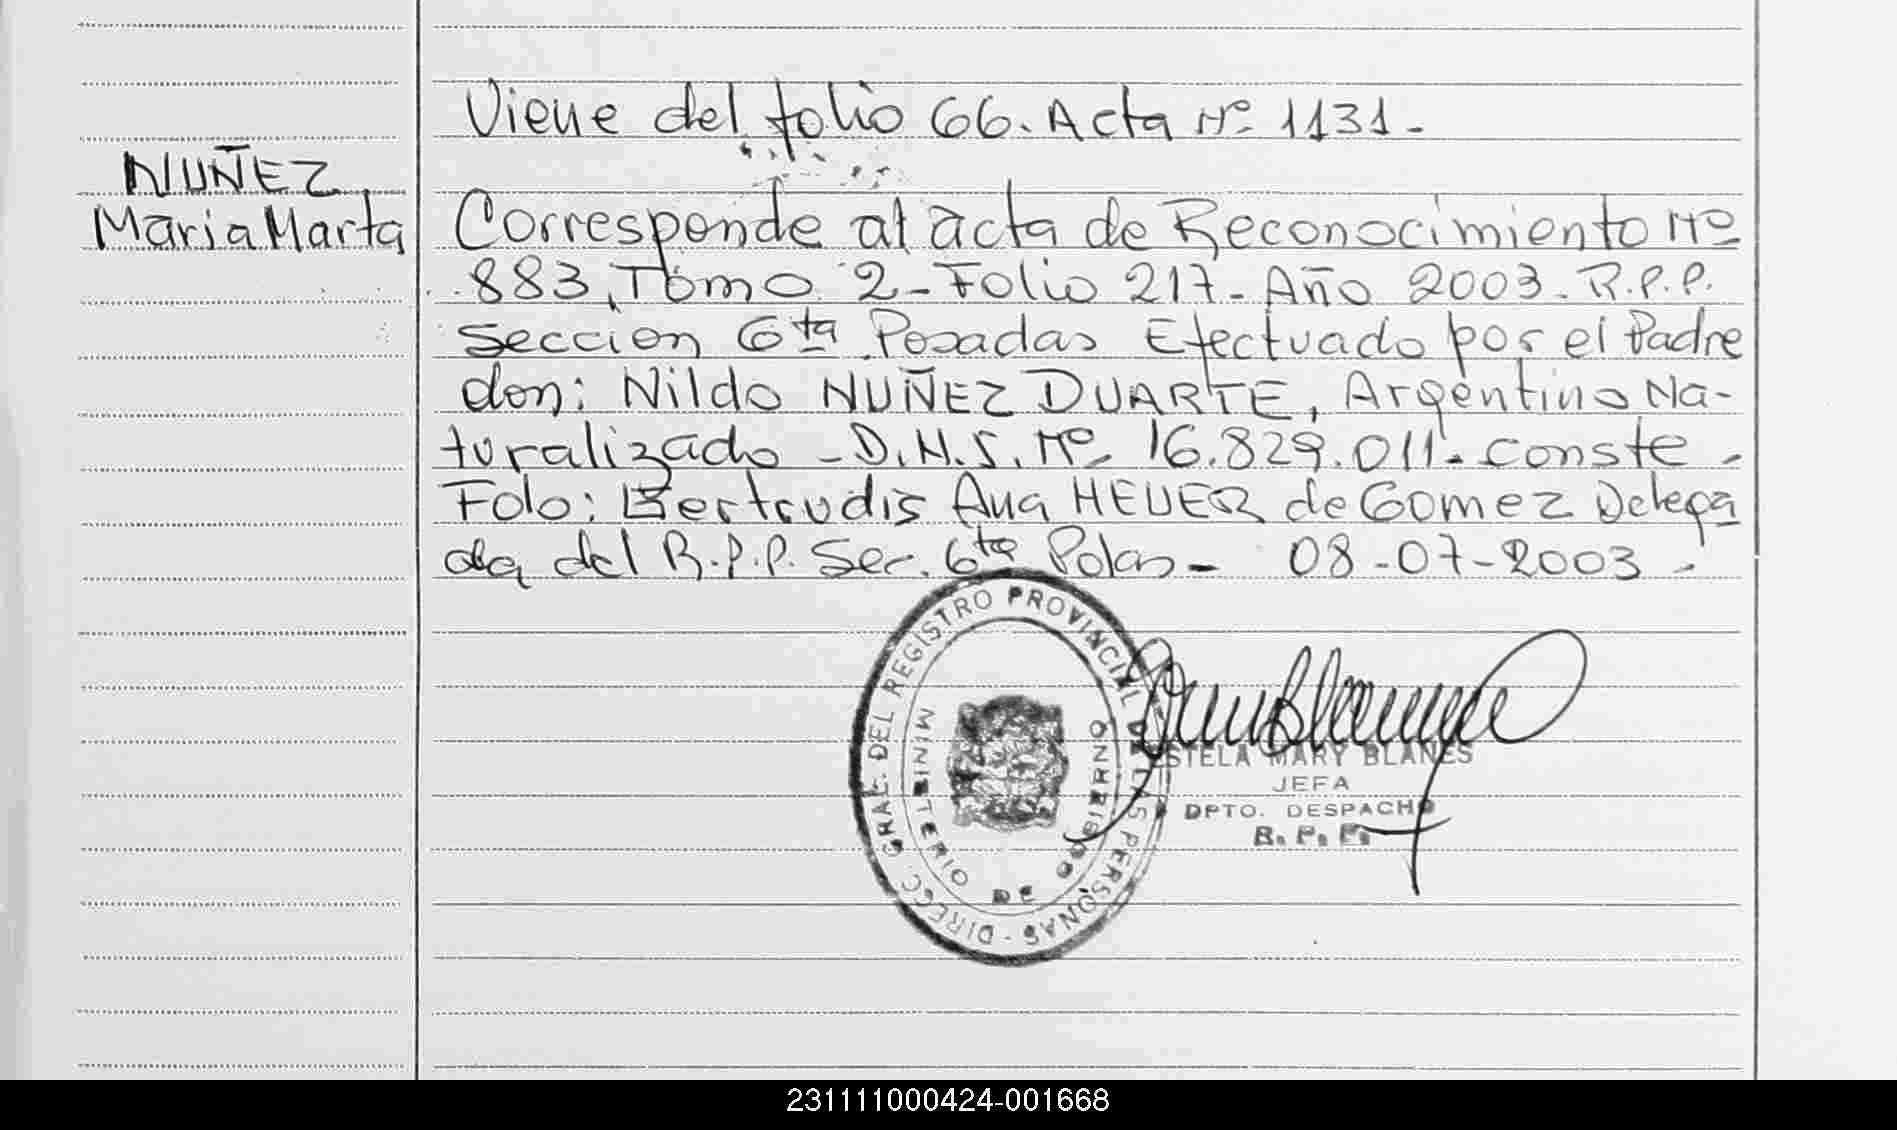 Viene del folio 66. Acta Nº 1131.-
NUÑEZ
Maria Marta
Corresponde al acta de Reconocimiento Nº
883, Tomo 2 - Folio 217 - Año 2003. R.P.P.
Seccion 6ta Posadas Efectuado por el Padre
don: Nildo NUÑEZ DUARTE, Argentino Na-
turalizado - D.N.I. Nº 16.829.011. conste -
Fdo: Gertrudis Ana HEUER de Gomez Delega
da del R.P.P. Sec. 6ta Pdas - 08-07-2003 -
DIRECC. GRAL. DEL REGISTRO PROVINCIAL DE LAS PERSONAS -
MINISTERIO DE GOBIERNO
ESTELA MARY BLANES
JEFA
DPTO. DESPACHO
R. P. P.
231111000424-001668